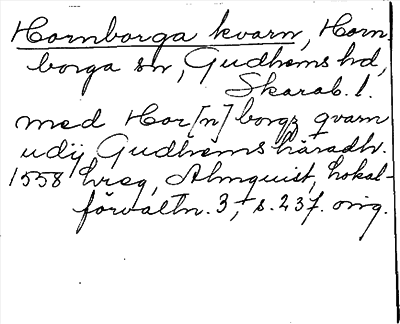 Hornborga kvarn, Horn
borga sn, Gudhems hd,
Skarab. l.
med Hor[n]borgz qvarn
udij Gudhems häradh.
1558 hreg, Almquist, Lokal-
förvaltn. 3, s. 237. orig.